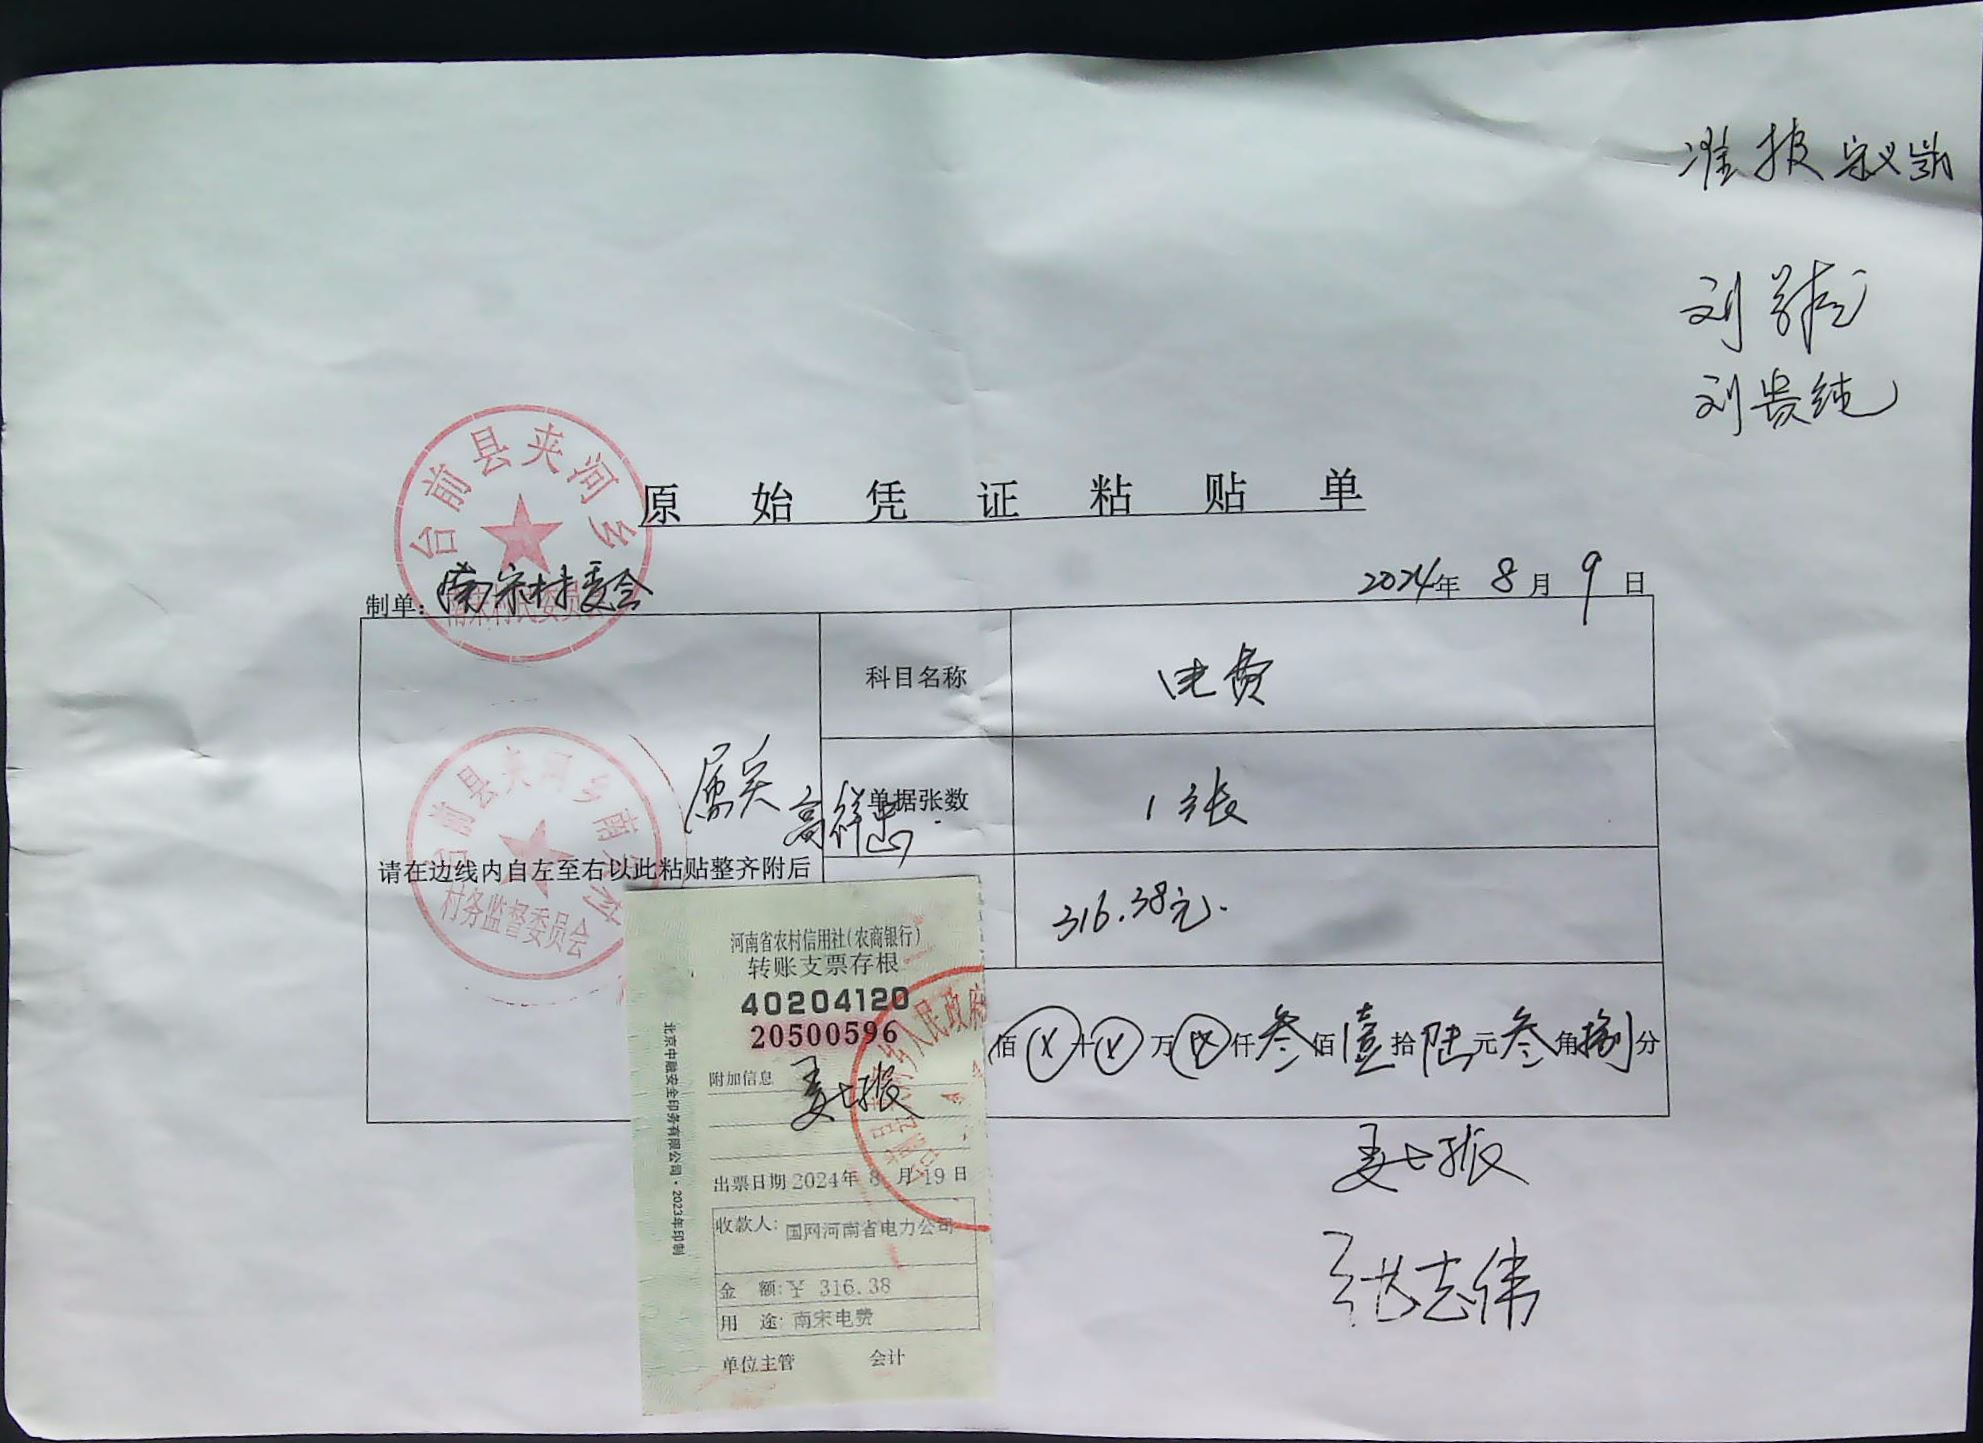 准报
刘贵纯
台前县夹河乡
南宋村民委员会
原始凭证粘贴单
制单：南宋村委会
2024年 8月 9日
科目名称 电费
属实
单据张数 1张
台前县夹河乡南宋村
村务监督委员会
请在边线内自左至右以此粘贴整齐附后
316.38元.
佰ⓧ十ⓧ万ⓧ仟叁佰壹拾陆元叁角捌分
河南省农村信用社(农商银行)
转账支票存根
40204120
20500596
附加信息
乡人民政府
北京中融安全印务有限公司·2023年印制
出票日期 2024年 8月 19日
收款人: 国网河南省电力公司
金 额: ¥ 316.38
用 途: 南宋电费
单位主管 会计
张志伟